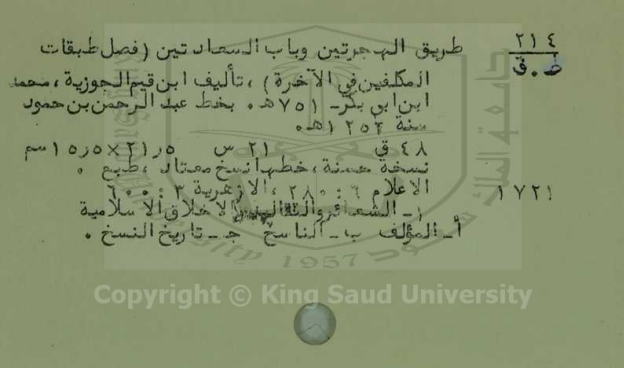 ٢١٤ طريق الهجرتين وباب السعادتين (فصل طبقات
ط.ق المكلفين في الآخرة) ، تأليف ابن قيم الجوزية ، محمد
ابن ابي بكر - ٧٥١هـ. بخط عبد الرحمن بن حمود
سنة ١٢٥٢هـ.
٤٨ ق ٢١ س ٢١٫٥×١٥٫٥ سم
نسخة حسنة ، خطها نسخ معتاد ، طبع .
١٧٢١ الاعلام ٦ : ٢٨٠ ، الازهرية ٣ : ٦٠٠
١- الشعائر والتقاليد الاخلاق الاسلامية
أ- المؤلف ب- الناسخ ج- تاريخ النسخ .
1957
Copyright © King Saud University